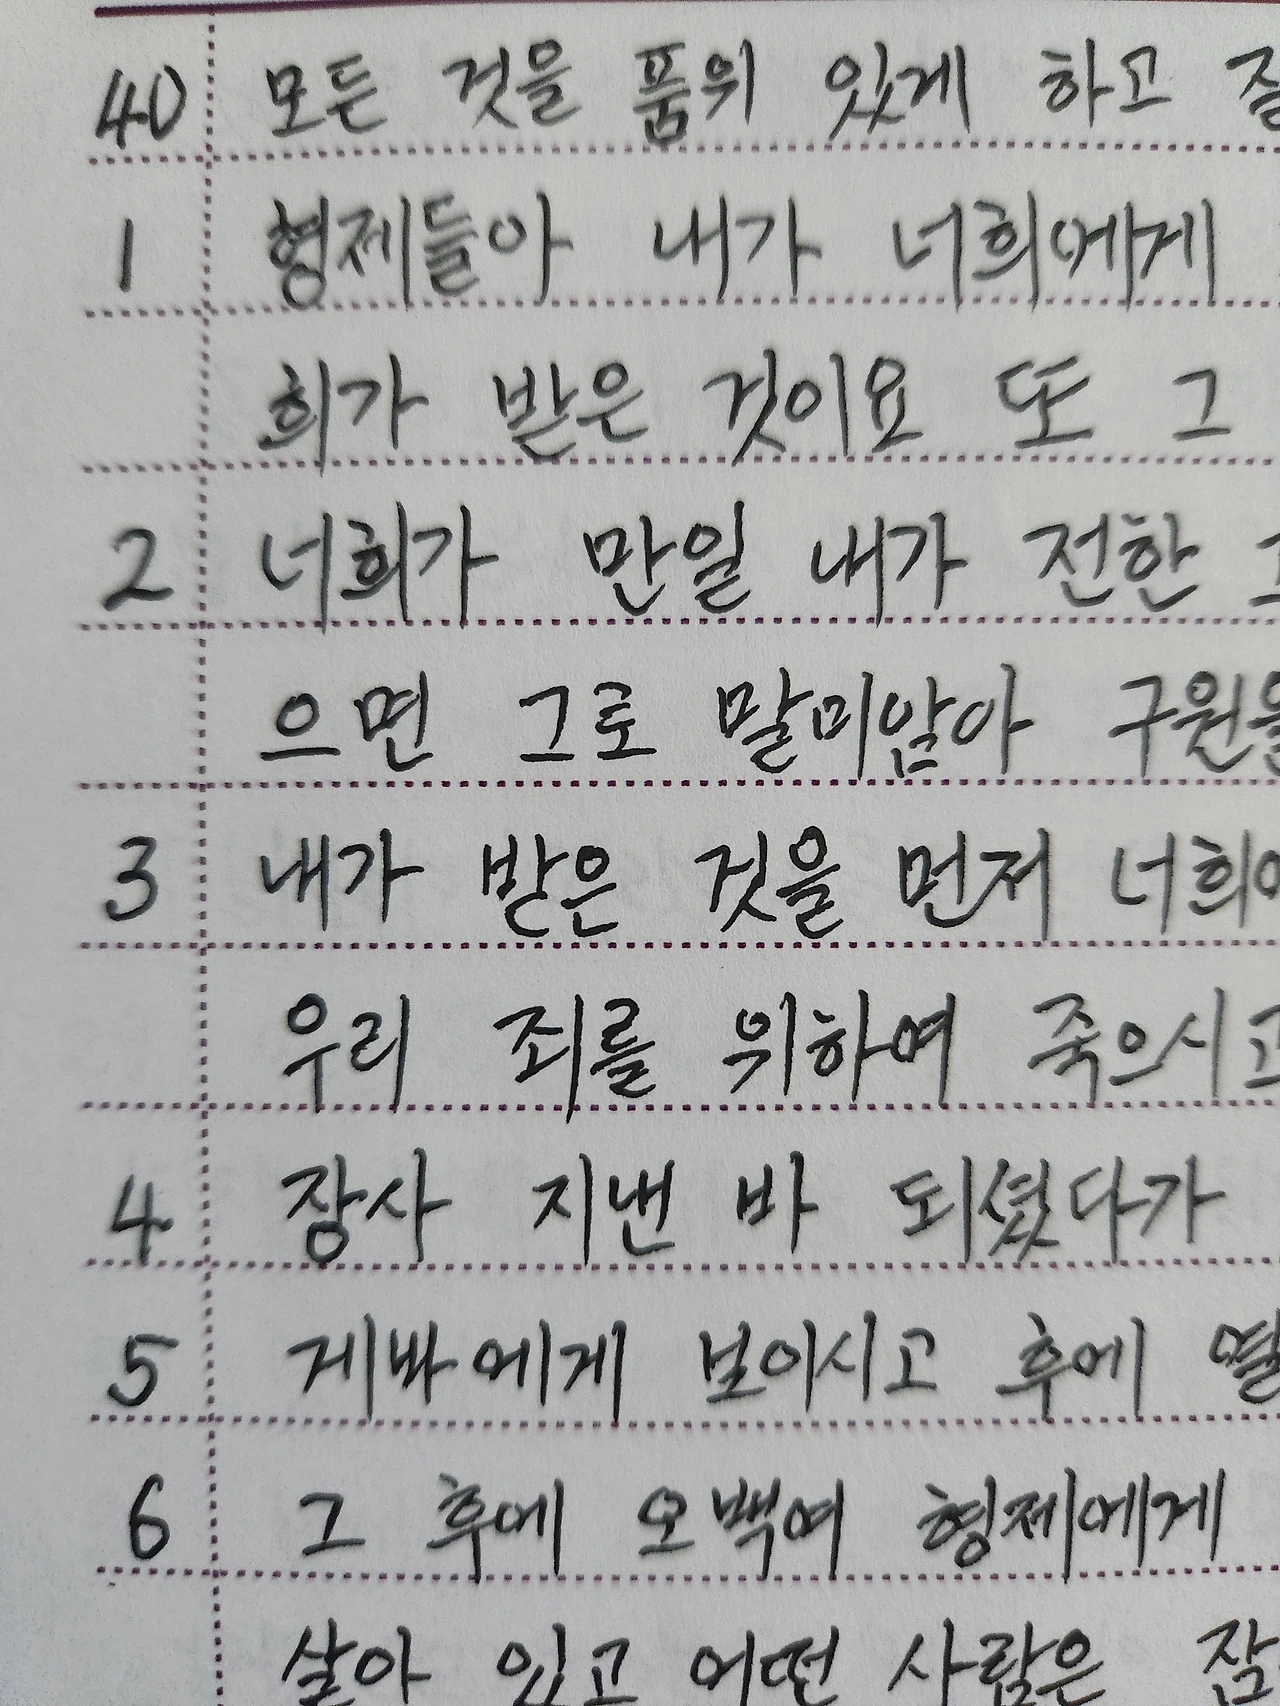 40 모든 것을 품위 있게 하고
1 형제들아 내가 너희에게
희가 받은 것이요 또 그
2 너희가 만일 내가 전한
으면 그로 말미암아 구원을
3 내가 받은 것을 먼저 너희에
우리 죄를 위하여 죽으시고
4 장사 지낸 바 되셨다가
5 게바에게 보이시고 후에 열
6 그 후에 오백여 형제에게
살아 있고 어떤 사람은 잠